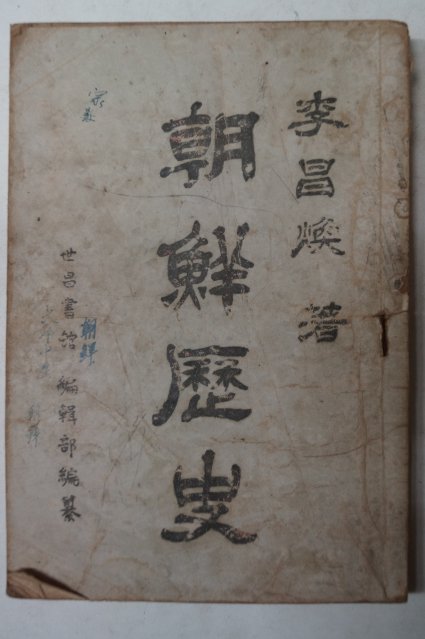 李昌煥 著
朝鮮歷史
世昌書舘 編輯部編纂
朝鮮